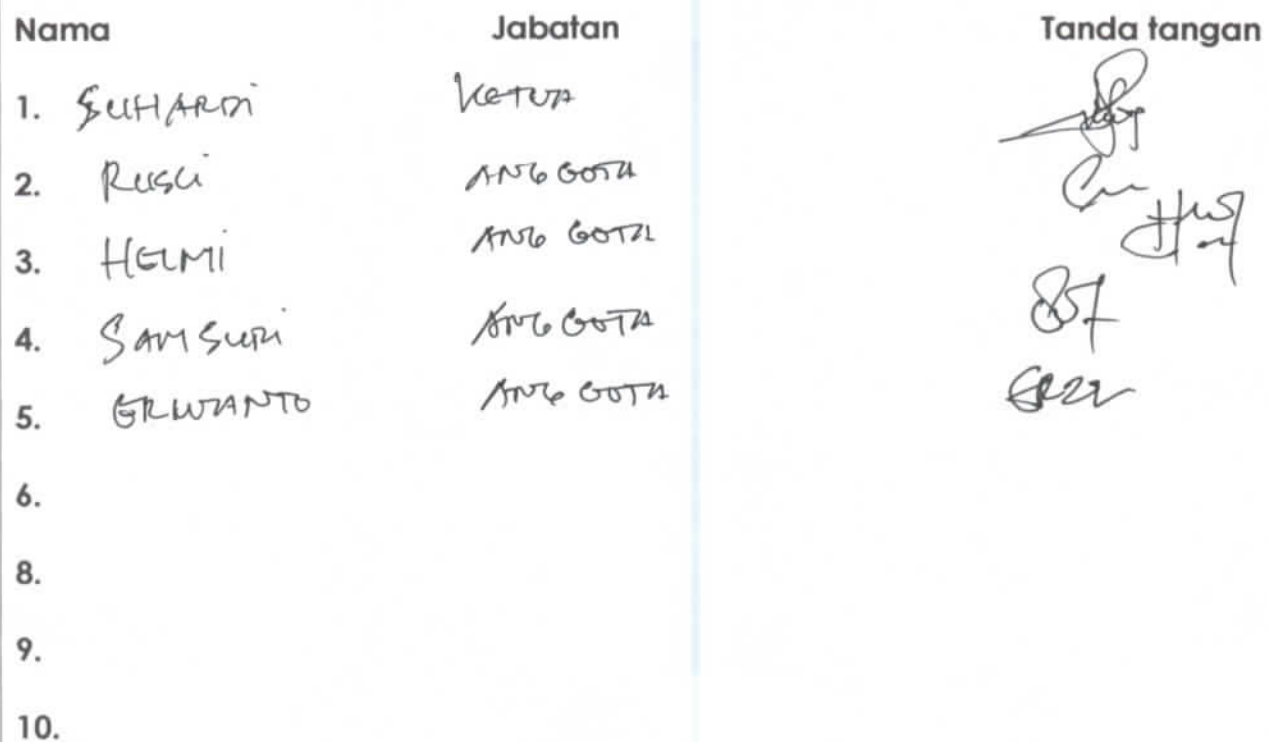 Nama Jabatan Tanda tangan
1. SUHARDI KETUA
2. RUSLI ANGGOTA
3. HELMI ANGGOTA
4. SAMSURI ANGGOTA
5. ERWANTO ANGGOTA
6.
8.
9.
10.